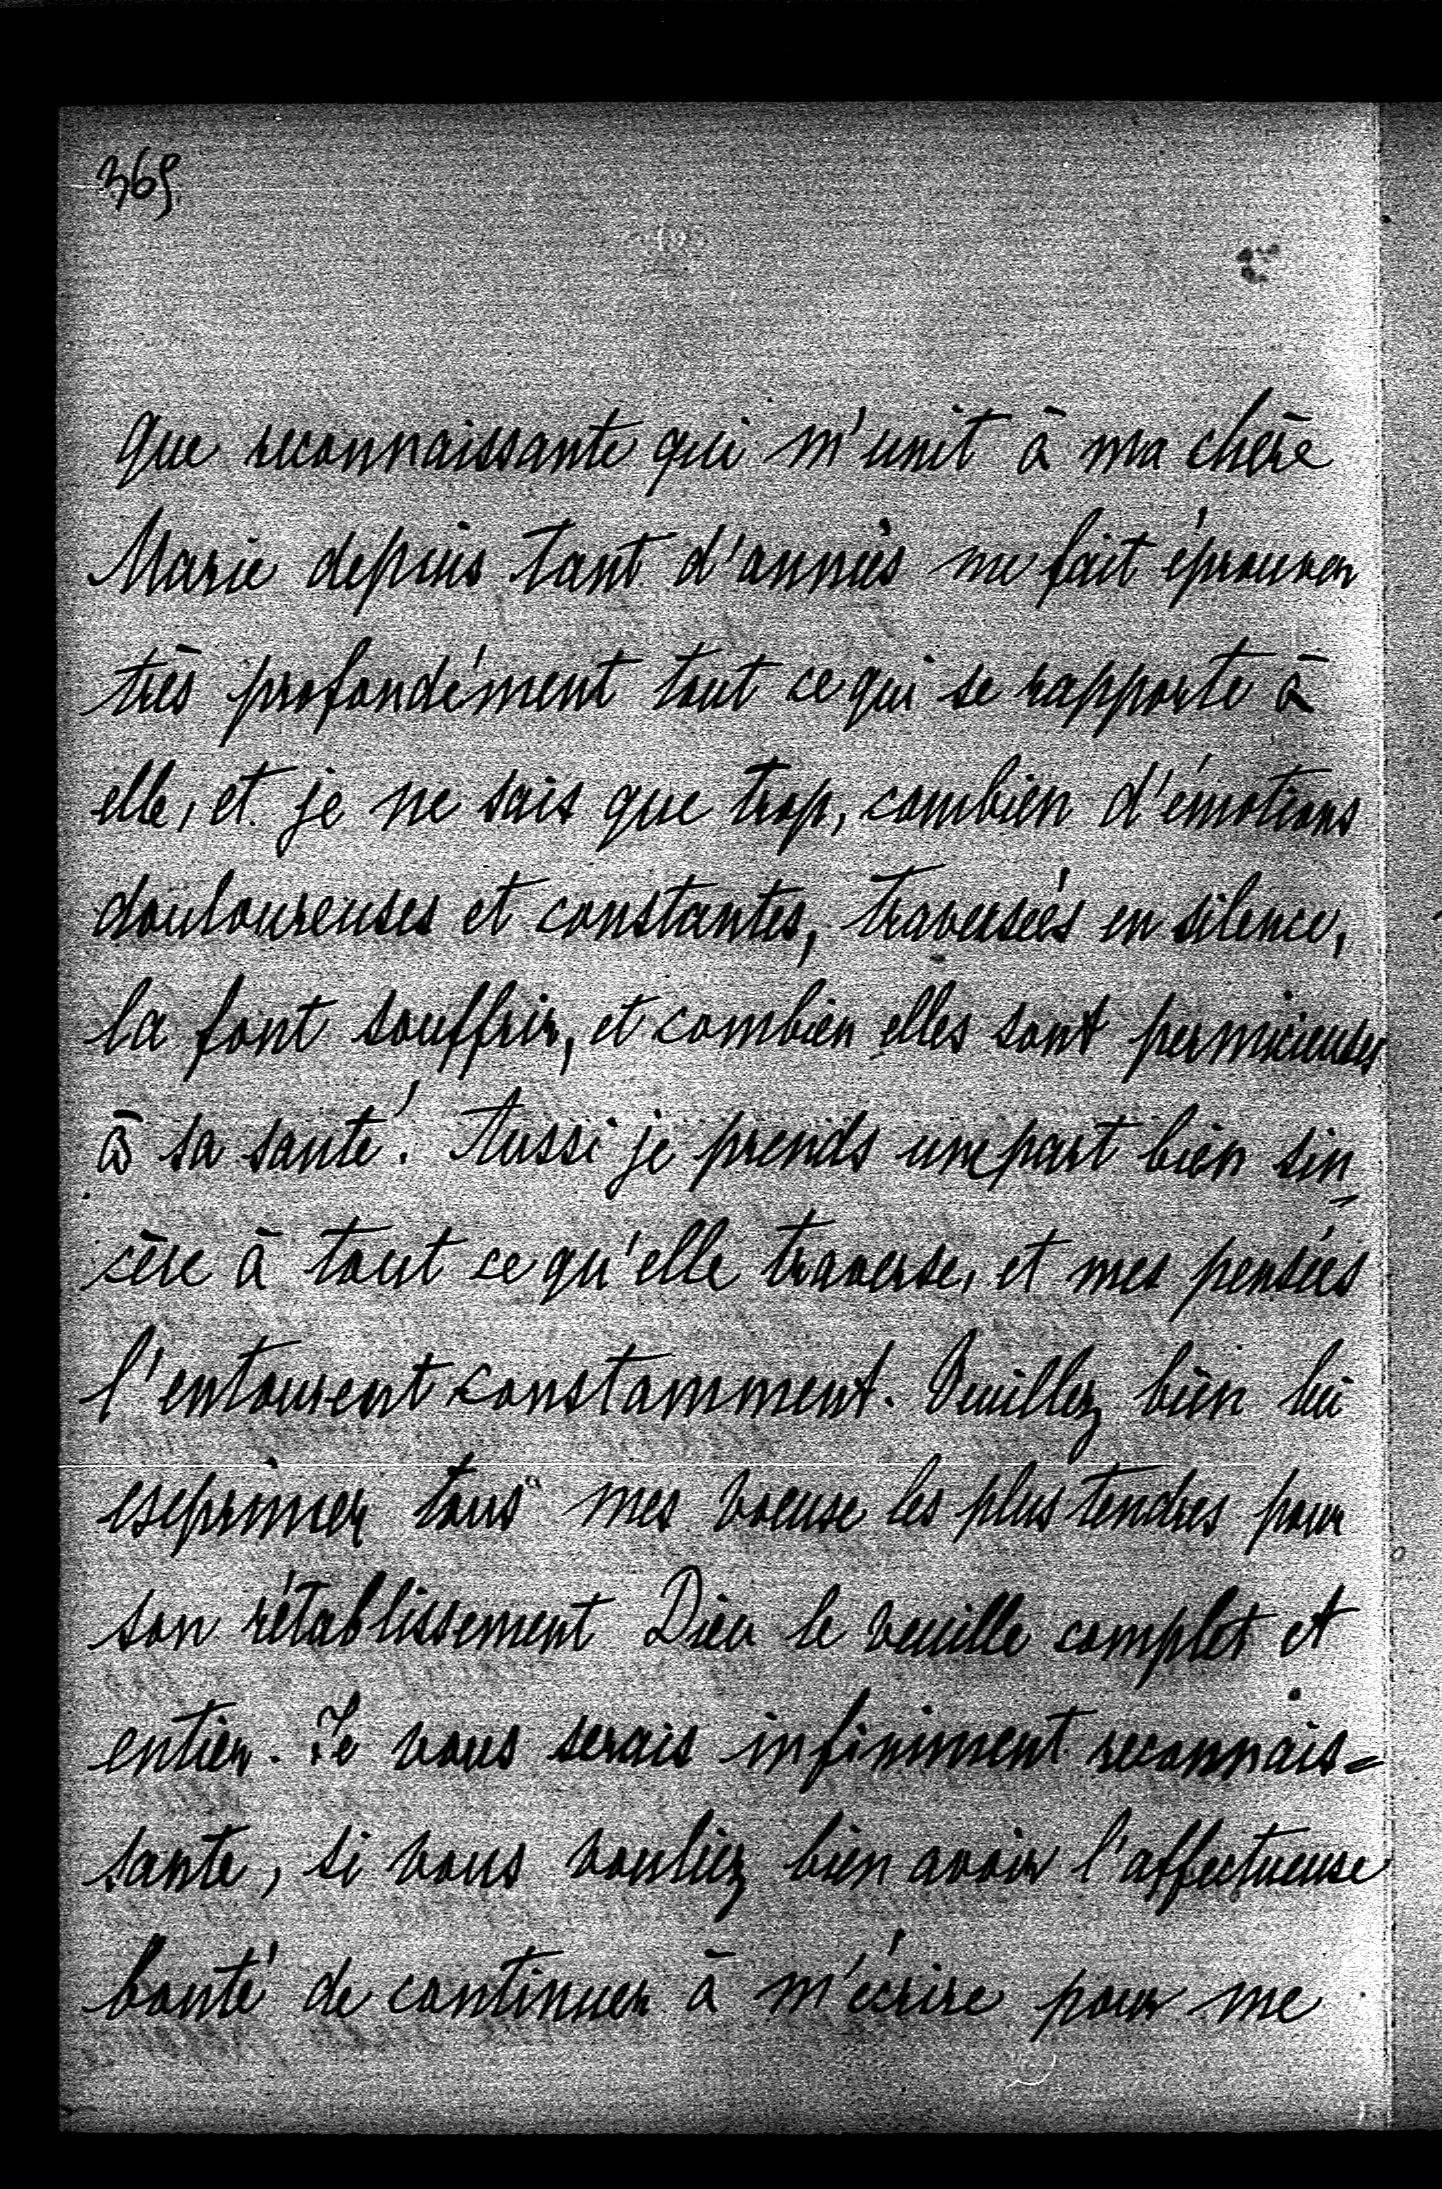 369.
que reconnaissante qui m'unit à ma chère
Marie depuis tant d'années me fait éprouver
très profondément tout ce qui se rapporte à
elle, et je ne sais que trop, combien d'émotions
douloureuses et constantes, traversées en silence,
la font souffrir, et combien elles sont pernicieuses
à sa santé! Aussi je prends une part bien sin
cère à tout ce qu'elle traverse, et mes pensées
l'entourent constamment. Veuillez bien lui
exprimer tous mes voeux les plus tendres pour
son rétablissement Dieu le veuille complet et
entier. Je vous serais infiniment reconnais=
sante, si vous vouliez bien avoir l'affectueuse
bonté de continuer à m'écrire pour me